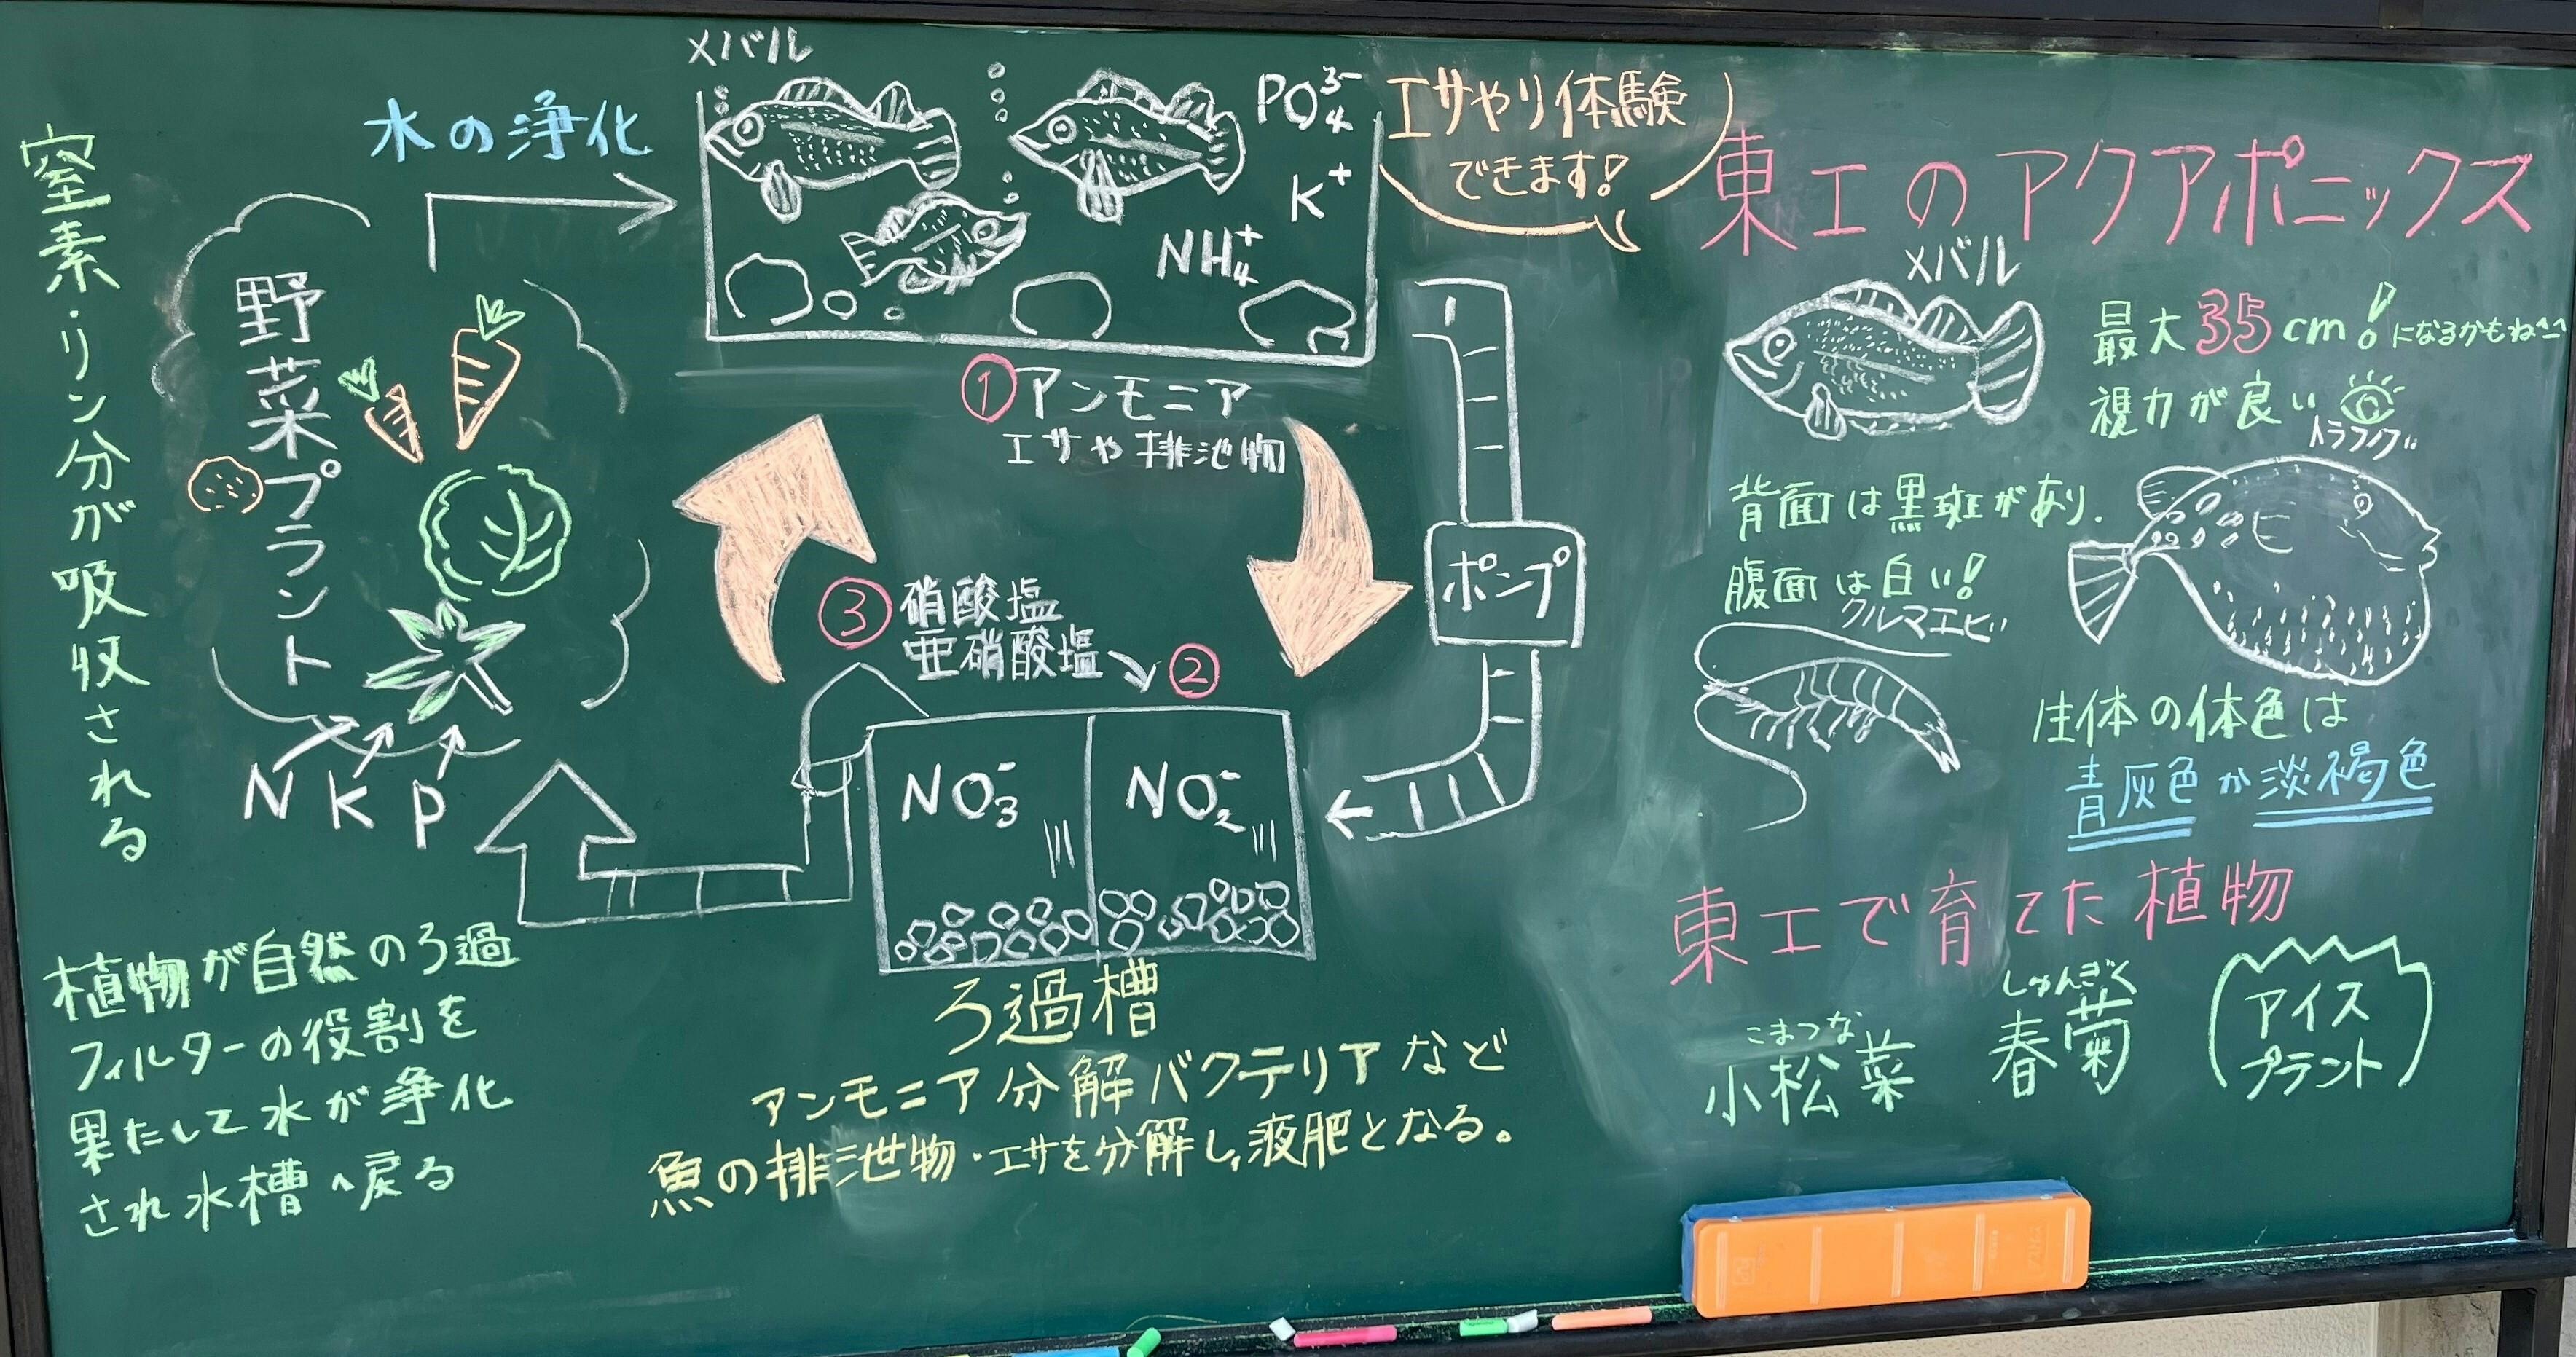 窒素・リン分が吸収される
水の浄化
メバル
PO₄³⁻
K⁺
NH₄⁺
エサやり体験
できます!
野菜プラント
N K P
①アンモニア
エサや排泄物
③硝酸塩
亜硝酸塩
②
ポンプ
NO₃⁻
NO₂⁻
ろ過槽
アンモニア分解バクテリアなど
魚の排泄物・エサを分解し,液肥となる。
植物が自然のろ過
フィルターの役割を
果たして水が浄化
され水槽へ戻る
東工のアクアポニックス
メバル
最大35cm!になるかもね^^
視力が良い
トラフグ
背面は黒斑があり.
腹面は白い!
クルマエビ
生体の体色は
青灰色か淡褐色
東工で育てた植物
こまつな
小松菜
しゅんぎく
春菊
アイス
プラント